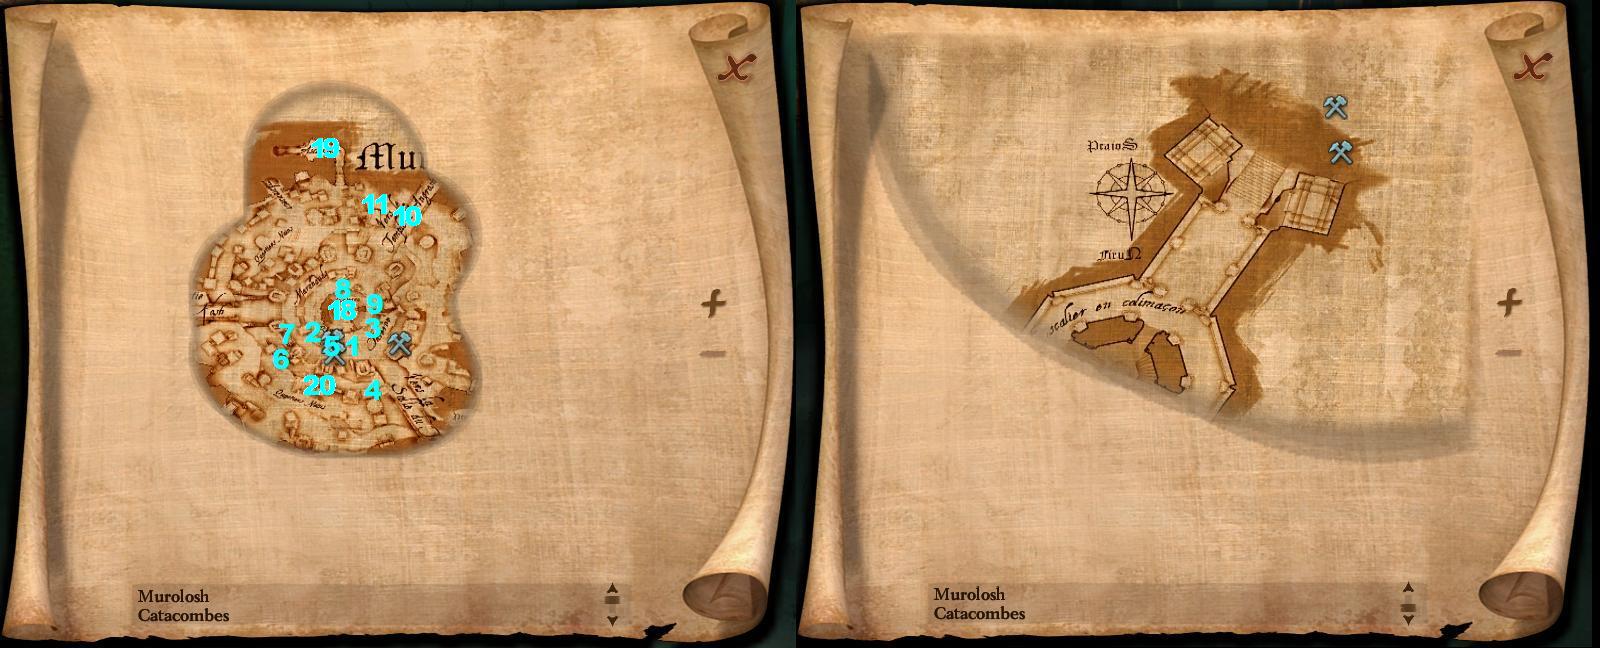 19
Mu
11
10
Marchands
8
18
9
7
2
3
5
1
6
20
4
Vers
Murolosh
Catacombes
PraioS
FiruN
scalier en colimaçon
Murolosh
Catacombes